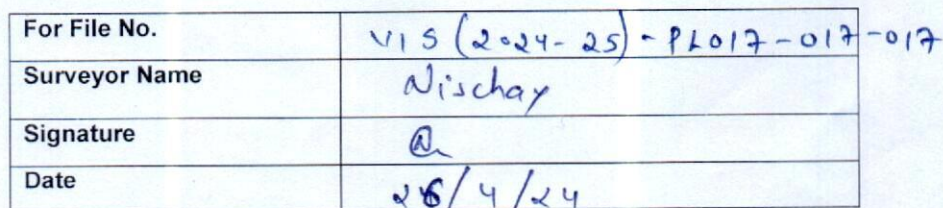 For File No. VIS (2024-25) - PL017-017-017
Surveyor Name Nischay
Signature
Date 26/4/24